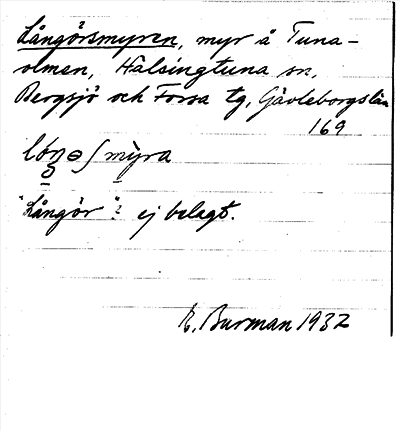 Långörsmyren, myr å Tuna-
olmen, Hälsingtuna sn,
Bergsjö och Forsa tg, Gävleborgs län
169
myra
"Långör"? ej belagt.
E. Burman 1932